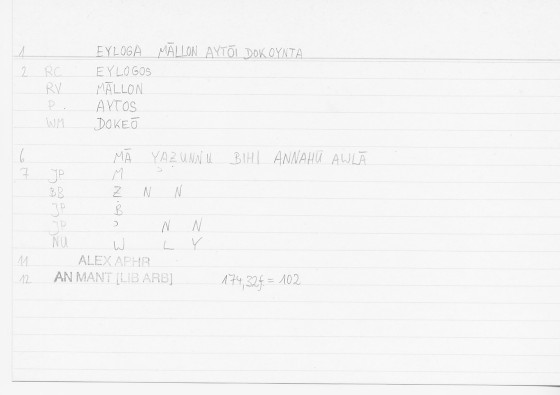 1 EYLOGA MĀLLON AYTŌI DOKOYNTA
2 RC EYLOGOS
RV MĀLLON
P. AYTOS
WM DOKEŌ
6 MĀ YAZUNNU BIHĪ ANNAHŪ AWLĀ
7 JP M
BB Z N N
JP B
JP ʾ N N
NU W L Y
11 ALEX APHR
12 AN MANT [LIB ARB] 174,32f = 102